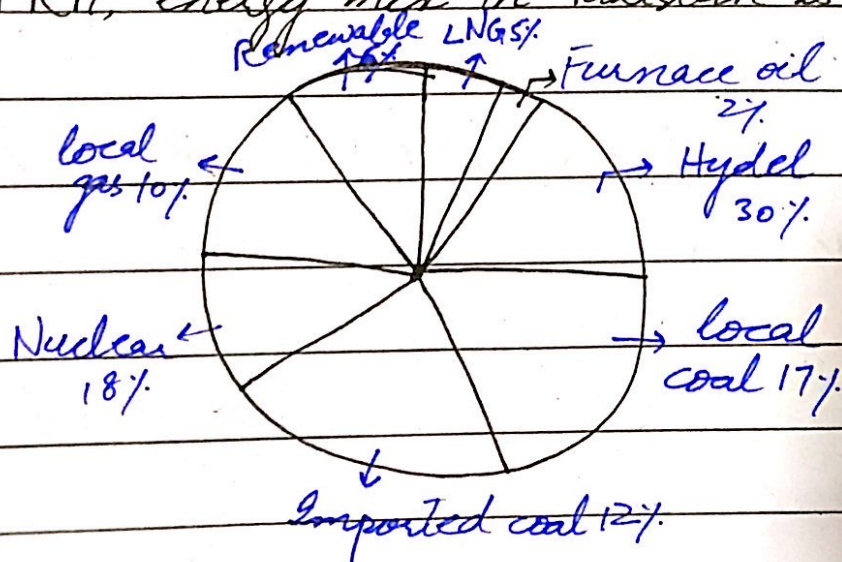 energy mix in
Renewable
6%
LNG 5%
Furnace oil
2%
Hydel
30%
local
coal 17%
Imported coal 12%
Nuclear
18%
local
gas 10%